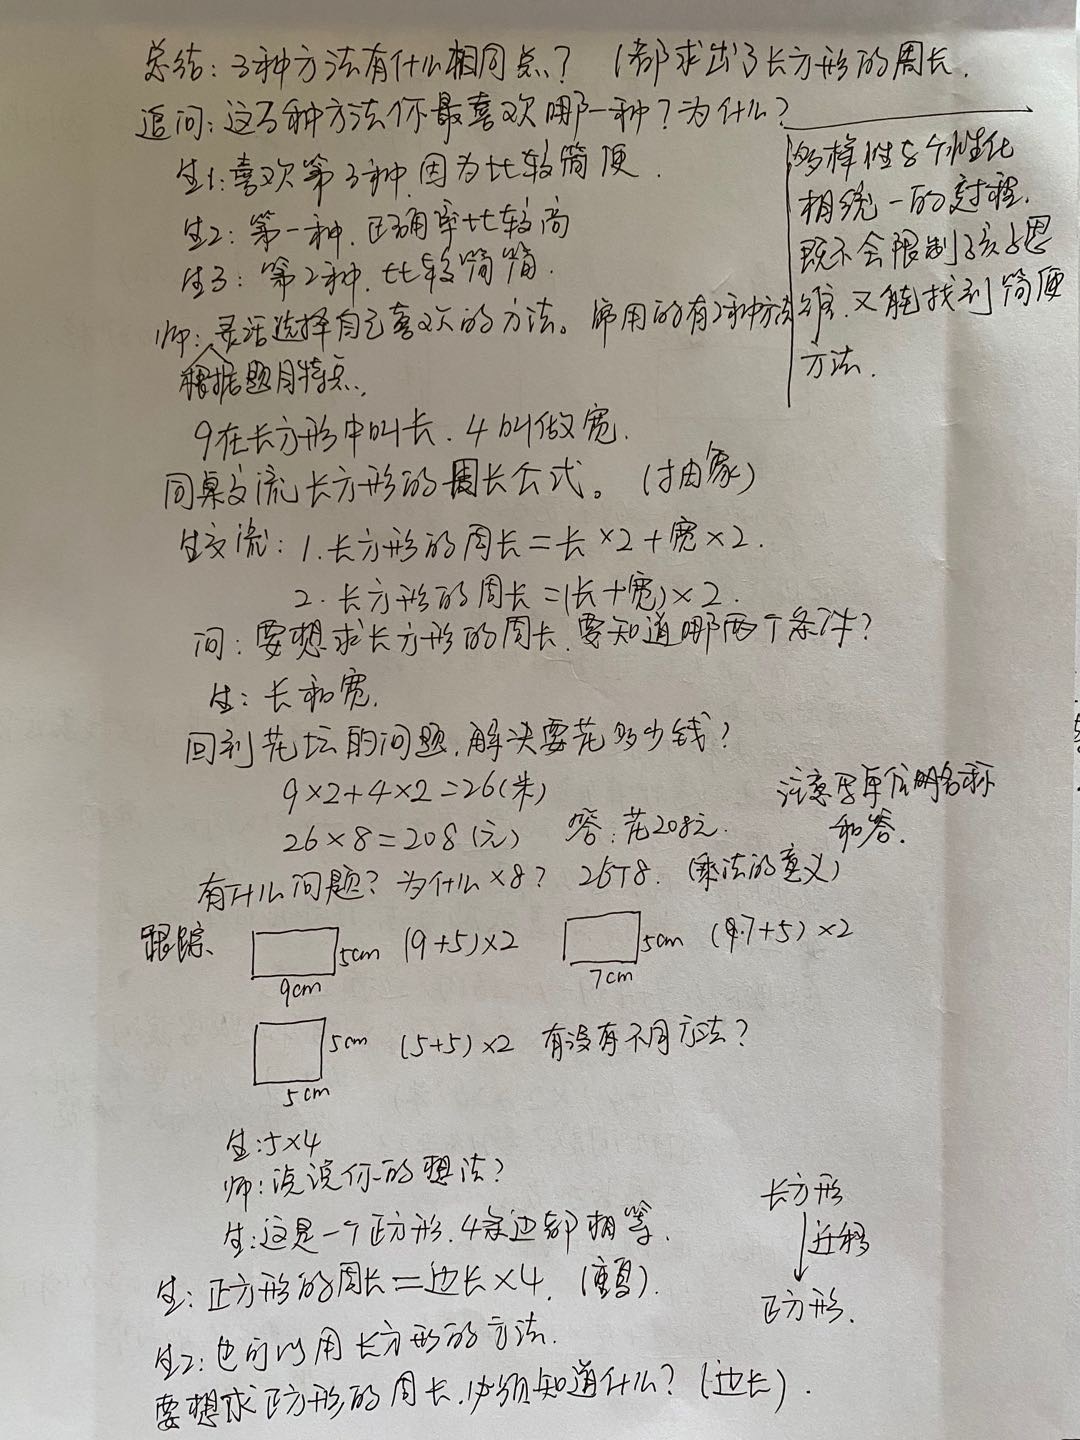 总结:3种方法有什么相同点? (都求出了长方形的周长.
追问:这3种方法你最喜欢哪一种?为什么?
生1:喜欢第3种,因为比较简便.
生2:第一种.正确率比较高
生3:第2种.比较简简.
师:灵活选择自己喜欢的方法。常用的有2种方法
根据题目特点.
多样性与个性化
相统一的过程.
既不会限制孩子思
维.又能找到简便
方法.
9在长方形中叫长.4叫做宽.
同桌交流长方形的周长公式。(抽象)
生交流:1.长方形的周长=长×2+宽×2.
2.长方形的周长=(长+宽)×2.
问:要想求长方形的周长.要知道哪两个条件?
生:长和宽.
回到花坛的问题.解决要花多少钱?
9×2+4×2=26(米)
26×8=208(元) 答:花208元.
注意写单位名称
和答.
有什么问题?为什么×8? 26个8.(乘法的意义)
跟踪、
5cm (9+5)×2 5cm (7+5)×2
9cm 7cm
5cm (5+5)×2 有没有不同方法?
5cm
生:5×4
师:说说你的想法?
生:这是一个正方形.4条边都相等.
生:正方形的周长=边长×4.
长方形
迁移
正方形.
生2:也可以用长方形的方法.
要想求正方形的周长.必须知道什么?(边长).